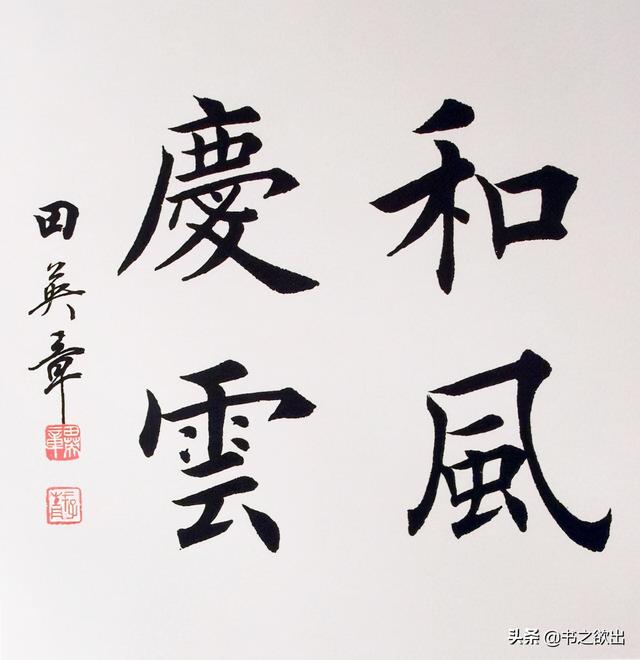 和風
慶雲
田英章
头条 @书之欲出